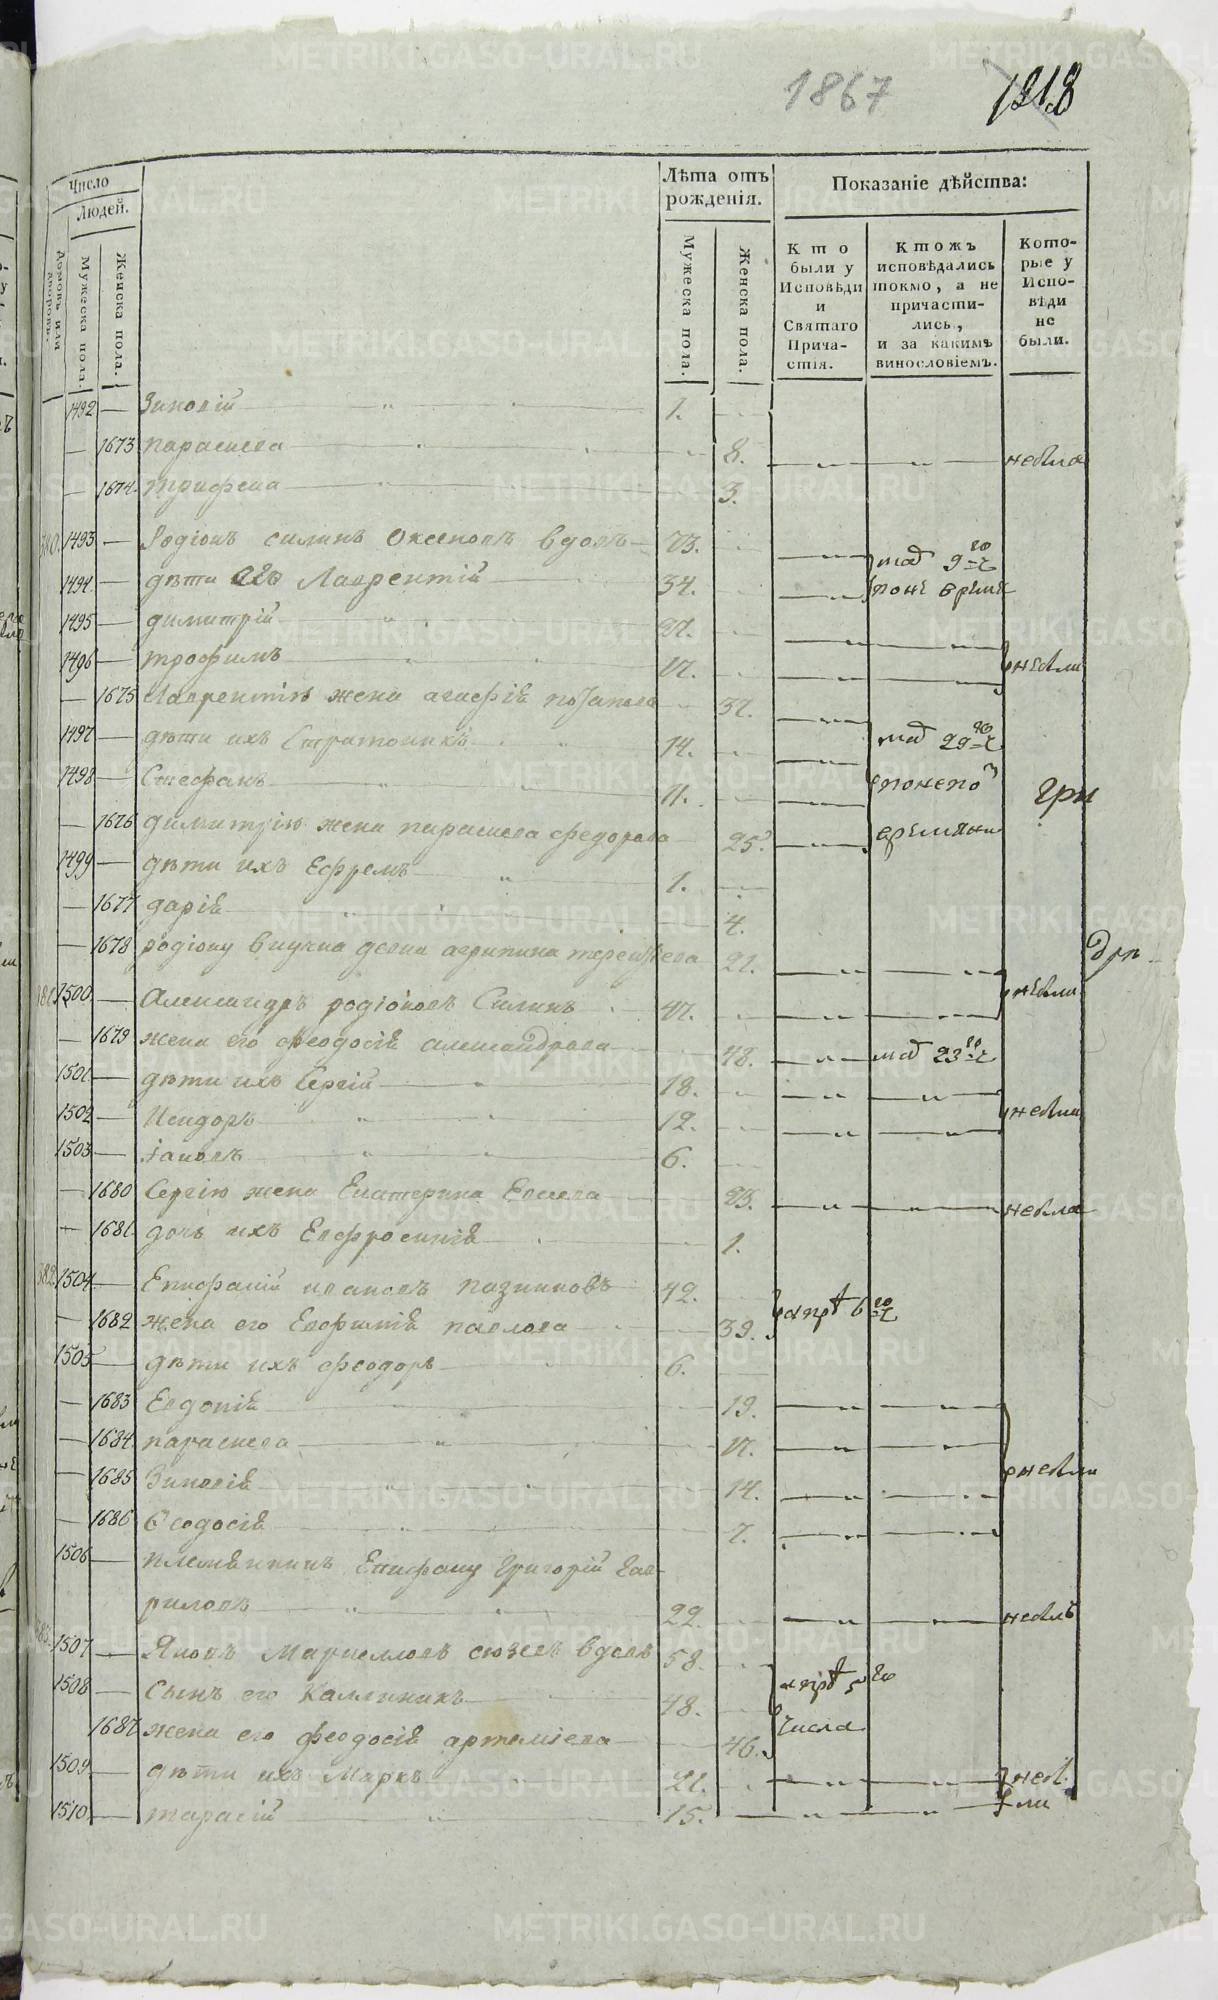 1867
1218
Число
Людей.
Домовъ или дворовъ.
Мужеска пола.
Женска пола.
Лѣта отъ рожденія.
Мужеска пола.
Женска пола.
Показаніе дѣйства:
Кто были у Исповѣди и Святаго Причастія.
Ктожъ исповѣдались токмо, а не причастились, и за какимъ винословіемъ.
Которые у Исповѣди не были.
1492 — Зиновій 1.
— 1673 параскева 8. небыла
— 1674 трифена 3.
380. 1493 — Родіонъ силинъ Оксеновъ вдовъ 73. мая 9го ч
1494 — дѣти его Лаврентій 34.
1495 — димитрій 27.
1496 — трофимъ 17. небыли
— 1675 Лаврентію жена агафія потапова 37.
1497 — дѣти ихъ Стратоникъ 14. мая 29го ч
1498 — Стефанъ 11.
— 1676 димитрію жена параскева федорова 25.
1499 — дѣти ихъ Ефремъ 1.
— 1677 дарія 4.
— 1678 родіону внучка девка агрипина терентьева 21.
381. 1500 — Александръ родіоновъ Силинъ 47. небыли
— 1679 жена его Феодосія александрова 48. мая 23го ч
1501 — дѣти ихъ Сергій 18.
1502 — Исидоръ 12. небыли
1503 — іаковъ 6.
— 1680 Сергію жена Екатерина 23. небыла
— 1681 дочь ихъ Евфросинія 1.
382 1504 — Епифаній ивановъ 42. апр 6го ч
— 1682 жена его Евфимія павлова 39.
1505 — дѣти ихъ феодоръ 6.
— 1683 Евдокія 19.
— 1684 параскева 17.
— 1685 Зиновія 14. небыли
— 1686 Феодосія 7.
1506 — племянникъ Епифану Григорій Гав-
риловъ 22. небылъ
383 1507 — Яковъ вдовъ 58.
1508 — Сынъ его Каллиникъ 48. апр 5го
числа
1687 жена его феодосія артемиева 46.
1509 — дѣти ихъ Маркъ 21. небы
1510 — тарасій 15. ли
METRIKI.GASO-URAL.RU